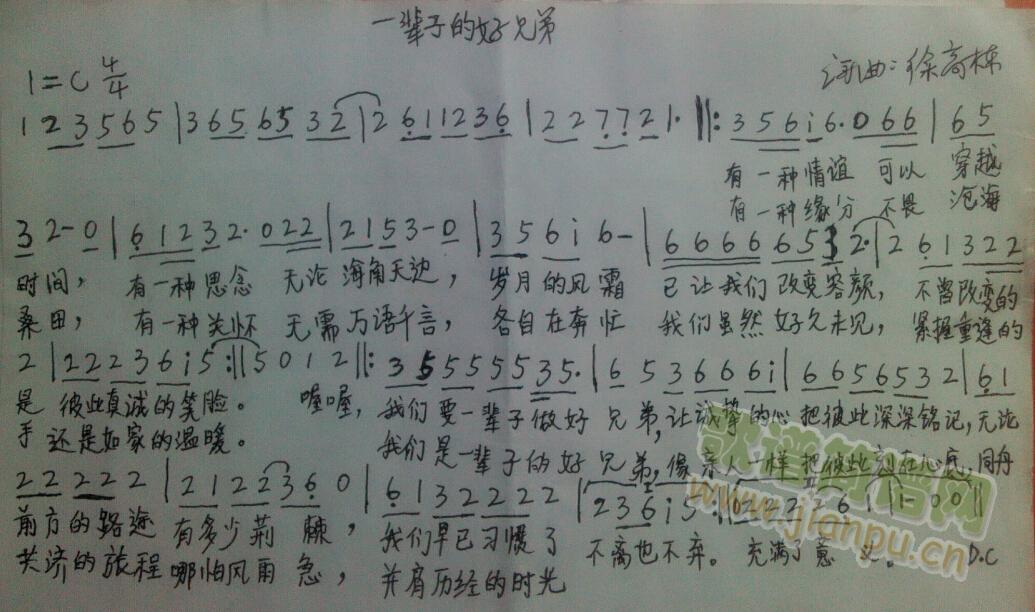 一辈子的好兄弟
1=C 4/4
词曲:徐高栋
1 2 3 5 6 5 | 3 6 5 6 5 3 2 | 2 6 1 1 2 3 6 | 2 2 7 7 2 1· ‖: 3 5 6 i 6· 0 6 6 | 6 5
有一种情谊 可以 穿越
有一种缘分 不畏 沧海
3 2 - 0 | 6 1 2 3 2· 0 2 2 | 2 1 5 3 - 0 | 3 5 6 i 6 - | 6 6 6 6 6 5 3 2· | 2 6 1 3 2 2
时间, 有一种思念 无论 海角天边, 岁月的风霜 已让我们改变容颜, 不曾改变的
桑田, 有一种关怀 无需 万语千言, 各自在奔忙 我们虽然好久未见, 紧握重逢的
2 | 2 2 2 3 6 i 5 :‖ 5 0 1 2 ‖: 3 5 5 5 5 5 3 5· | 6 5 3 6 6 6 i | 6 6 5 6 5 3 2 | 6 1
是 彼此真诚的笑脸。 喔喔, 我们要一辈子做好兄弟, 让诚挚的心把彼此深深铭记, 无论
手 还是如家的温暖。 我们是一辈子的好兄弟, 像亲人一样把彼此刻在心底, 同舟
2 2 2 2 2 | 2 1 2 2 3 6 0 | 6 1 3 2 2 2 2 | 2 3 6 i 5 :‖ 0 2 2 2 2 6 1 | 1 - 0 0 ‖
前方的路途 有多少荆棘, 我们早已习惯了 不离也不弃。 充满了意义。 D.C
共济的旅程 哪怕风雨急, 并肩历经的时光
歌谱简谱网
www.jianpu.cn